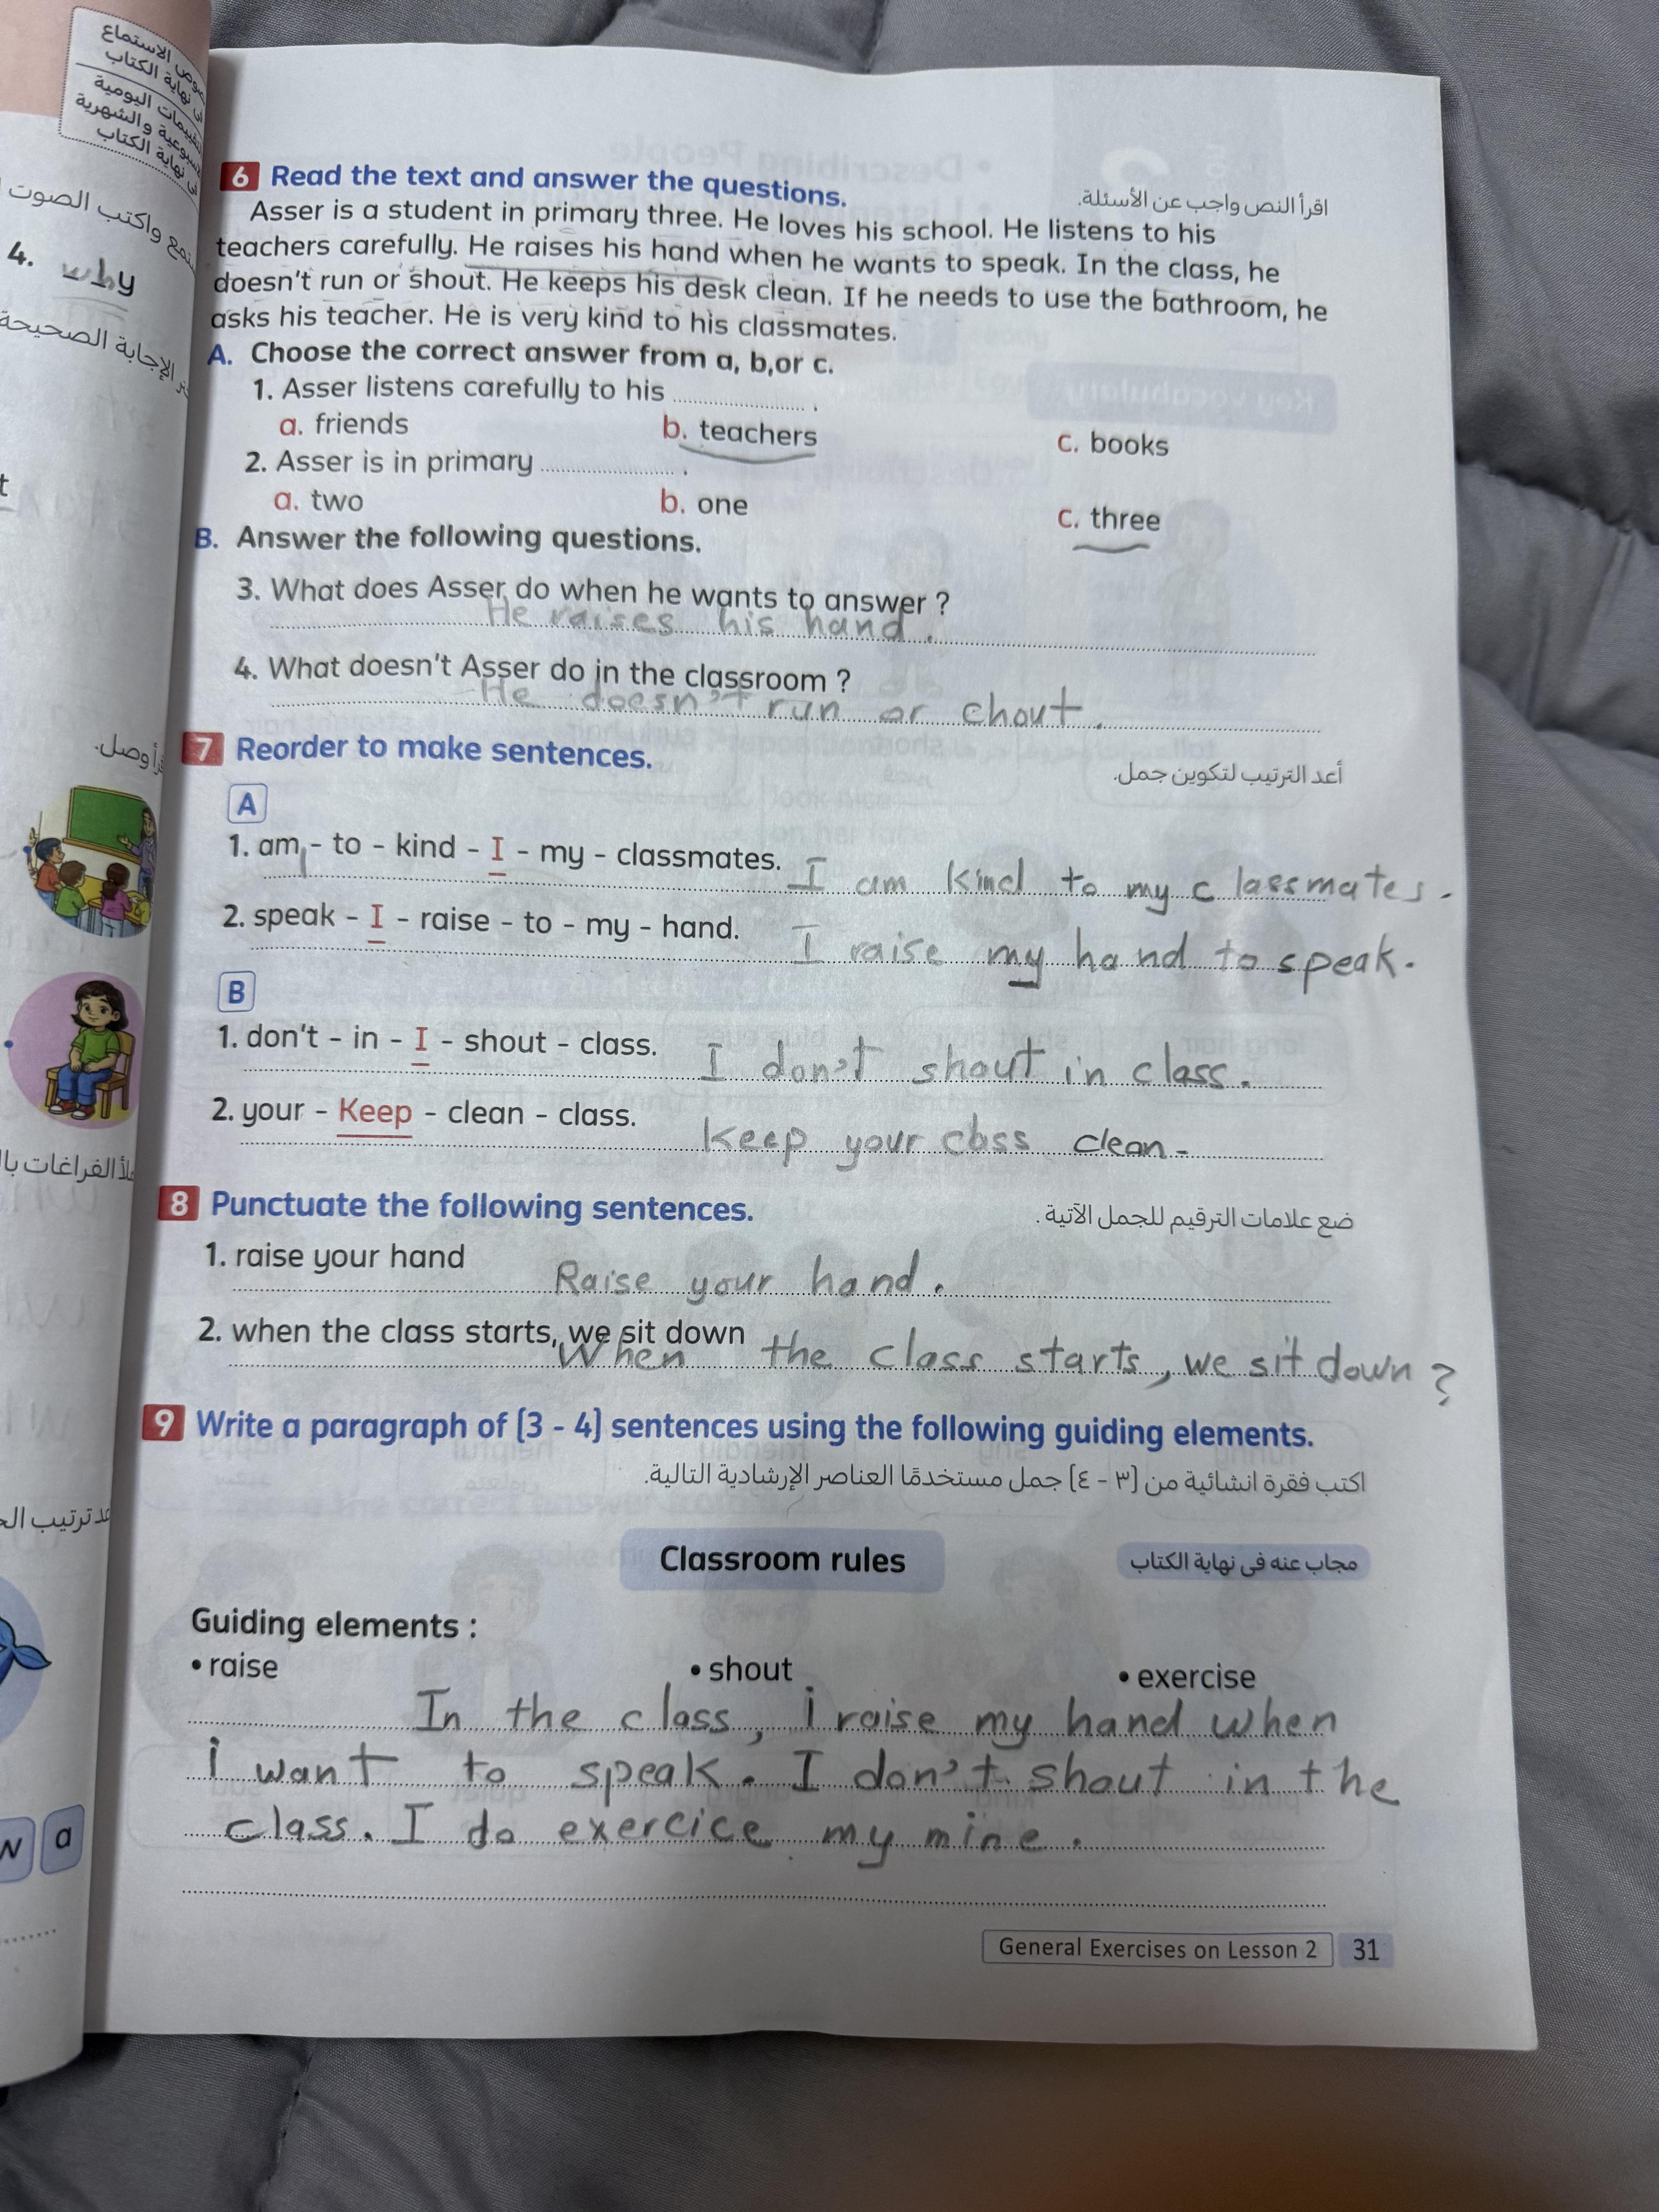 الاستماع
نهاية الكتاب
اليومية
والشهرية
نهاية الكتاب
واكتب الصوت
4. why
الإجابة الصحيحة
وصل.
الفراغات
ترتيب
a
6 Read the text and answer the questions.
اقرأ النص واجب عن الأسئلة.
Asser is a student in primary three. He loves his school. He listens to his
teachers carefully. He raises his hand when he wants to speak. In the class, he
doesn't run or shout. He keeps his desk clean. If he needs to use the bathroom, he
asks his teacher. He is very kind to his classmates.
A. Choose the correct answer from a, b,or c.
1. Asser listens carefully to his .................... .
a. friends b. teachers c. books
2. Asser is in primary .................... .
a. two b. one c. three
B. Answer the following questions.
3. What does Asser do when he wants to answer ?
He raises his hand.
4. What doesn't Asser do in the classroom ?
He doesn't run or chout.
7 Reorder to make sentences.
أعد الترتيب لتكوين جمل.
A
1. am - to - kind - I - my - classmates.
I am kind to my classmates.
2. speak - I - raise - to - my - hand.
I raise my hand to speak.
B
1. don't - in - I - shout - class.
I don't shout in class.
2. your - Keep - clean - class.
Keep your class clean.
8 Punctuate the following sentences.
ضع علامات الترقيم للجمل الآتية .
1. raise your hand
Raise your hand.
2. when the class starts, we sit down
When the class starts, we sit down?
9 Write a paragraph of (3 - 4) sentences using the following guiding elements.
اكتب فقرة انشائية من (٣ - ٤) جمل مستخدمًا العناصر الإرشادية التالية.
Classroom rules
مجاب عنه فى نهاية الكتاب
Guiding elements :
• raise • shout • exercise
In the class, i raise my hand when
i want to speak. I don't shout in the
class. I do exercice my mine.
General Exercises on Lesson 2 31